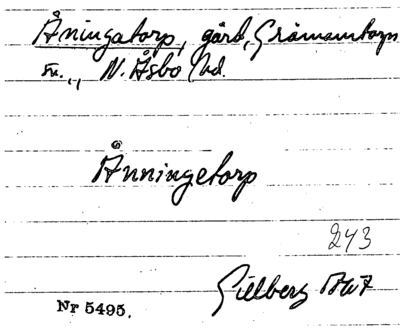 Åningatorp, gård, Grämanstorps
sn., N. Åsbo hd.
Ånningetorp
243
Gillberg
Nr 5495.